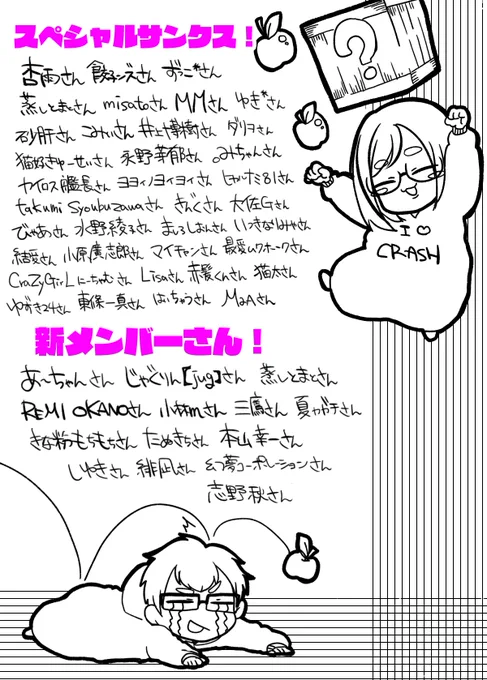 スペシャルサンクス！
杏雨さん 餃子ズさん ずっこ*さん
蒸しとまとさん misatoさん MMさん ゆぎ*さん
砂肝さん こみぃさん 井上博樹さん ダリヲさん
猫好きゅーせいさん 永野芽郁さん みちゃんさん
ナイロス艦長さん ヨヨイノヨイヨイさん ヒャハナミ81さん
takumi Syoubuzawaさん きんぐさん 大佐Gさん
びゃあっさん 水野綾子さん まっしぉんさん いっきなりみやさん
結愛さん 小原廣志郎さん マイチャンさん
CraZyGirLにーちゃむさん Lisaさん 赤髪くんさん 猫太さん
ゆずき24さん 東保一真さん はっちゅうさん M2Aさん
I ♡
CRASH
?
新メンバーさん！
あ〜ちゃんさん じゃぐりん【jug】さん 蒸しとまとさん
REMI OKANOさん 小林mさん 三鷹さん 夏ヵガチさん
きな粉もちもちさん ためきちさん 本山幸一さん
しゆきさん 緋凪さん 幻夢コーポレーションさん
志野秋さん